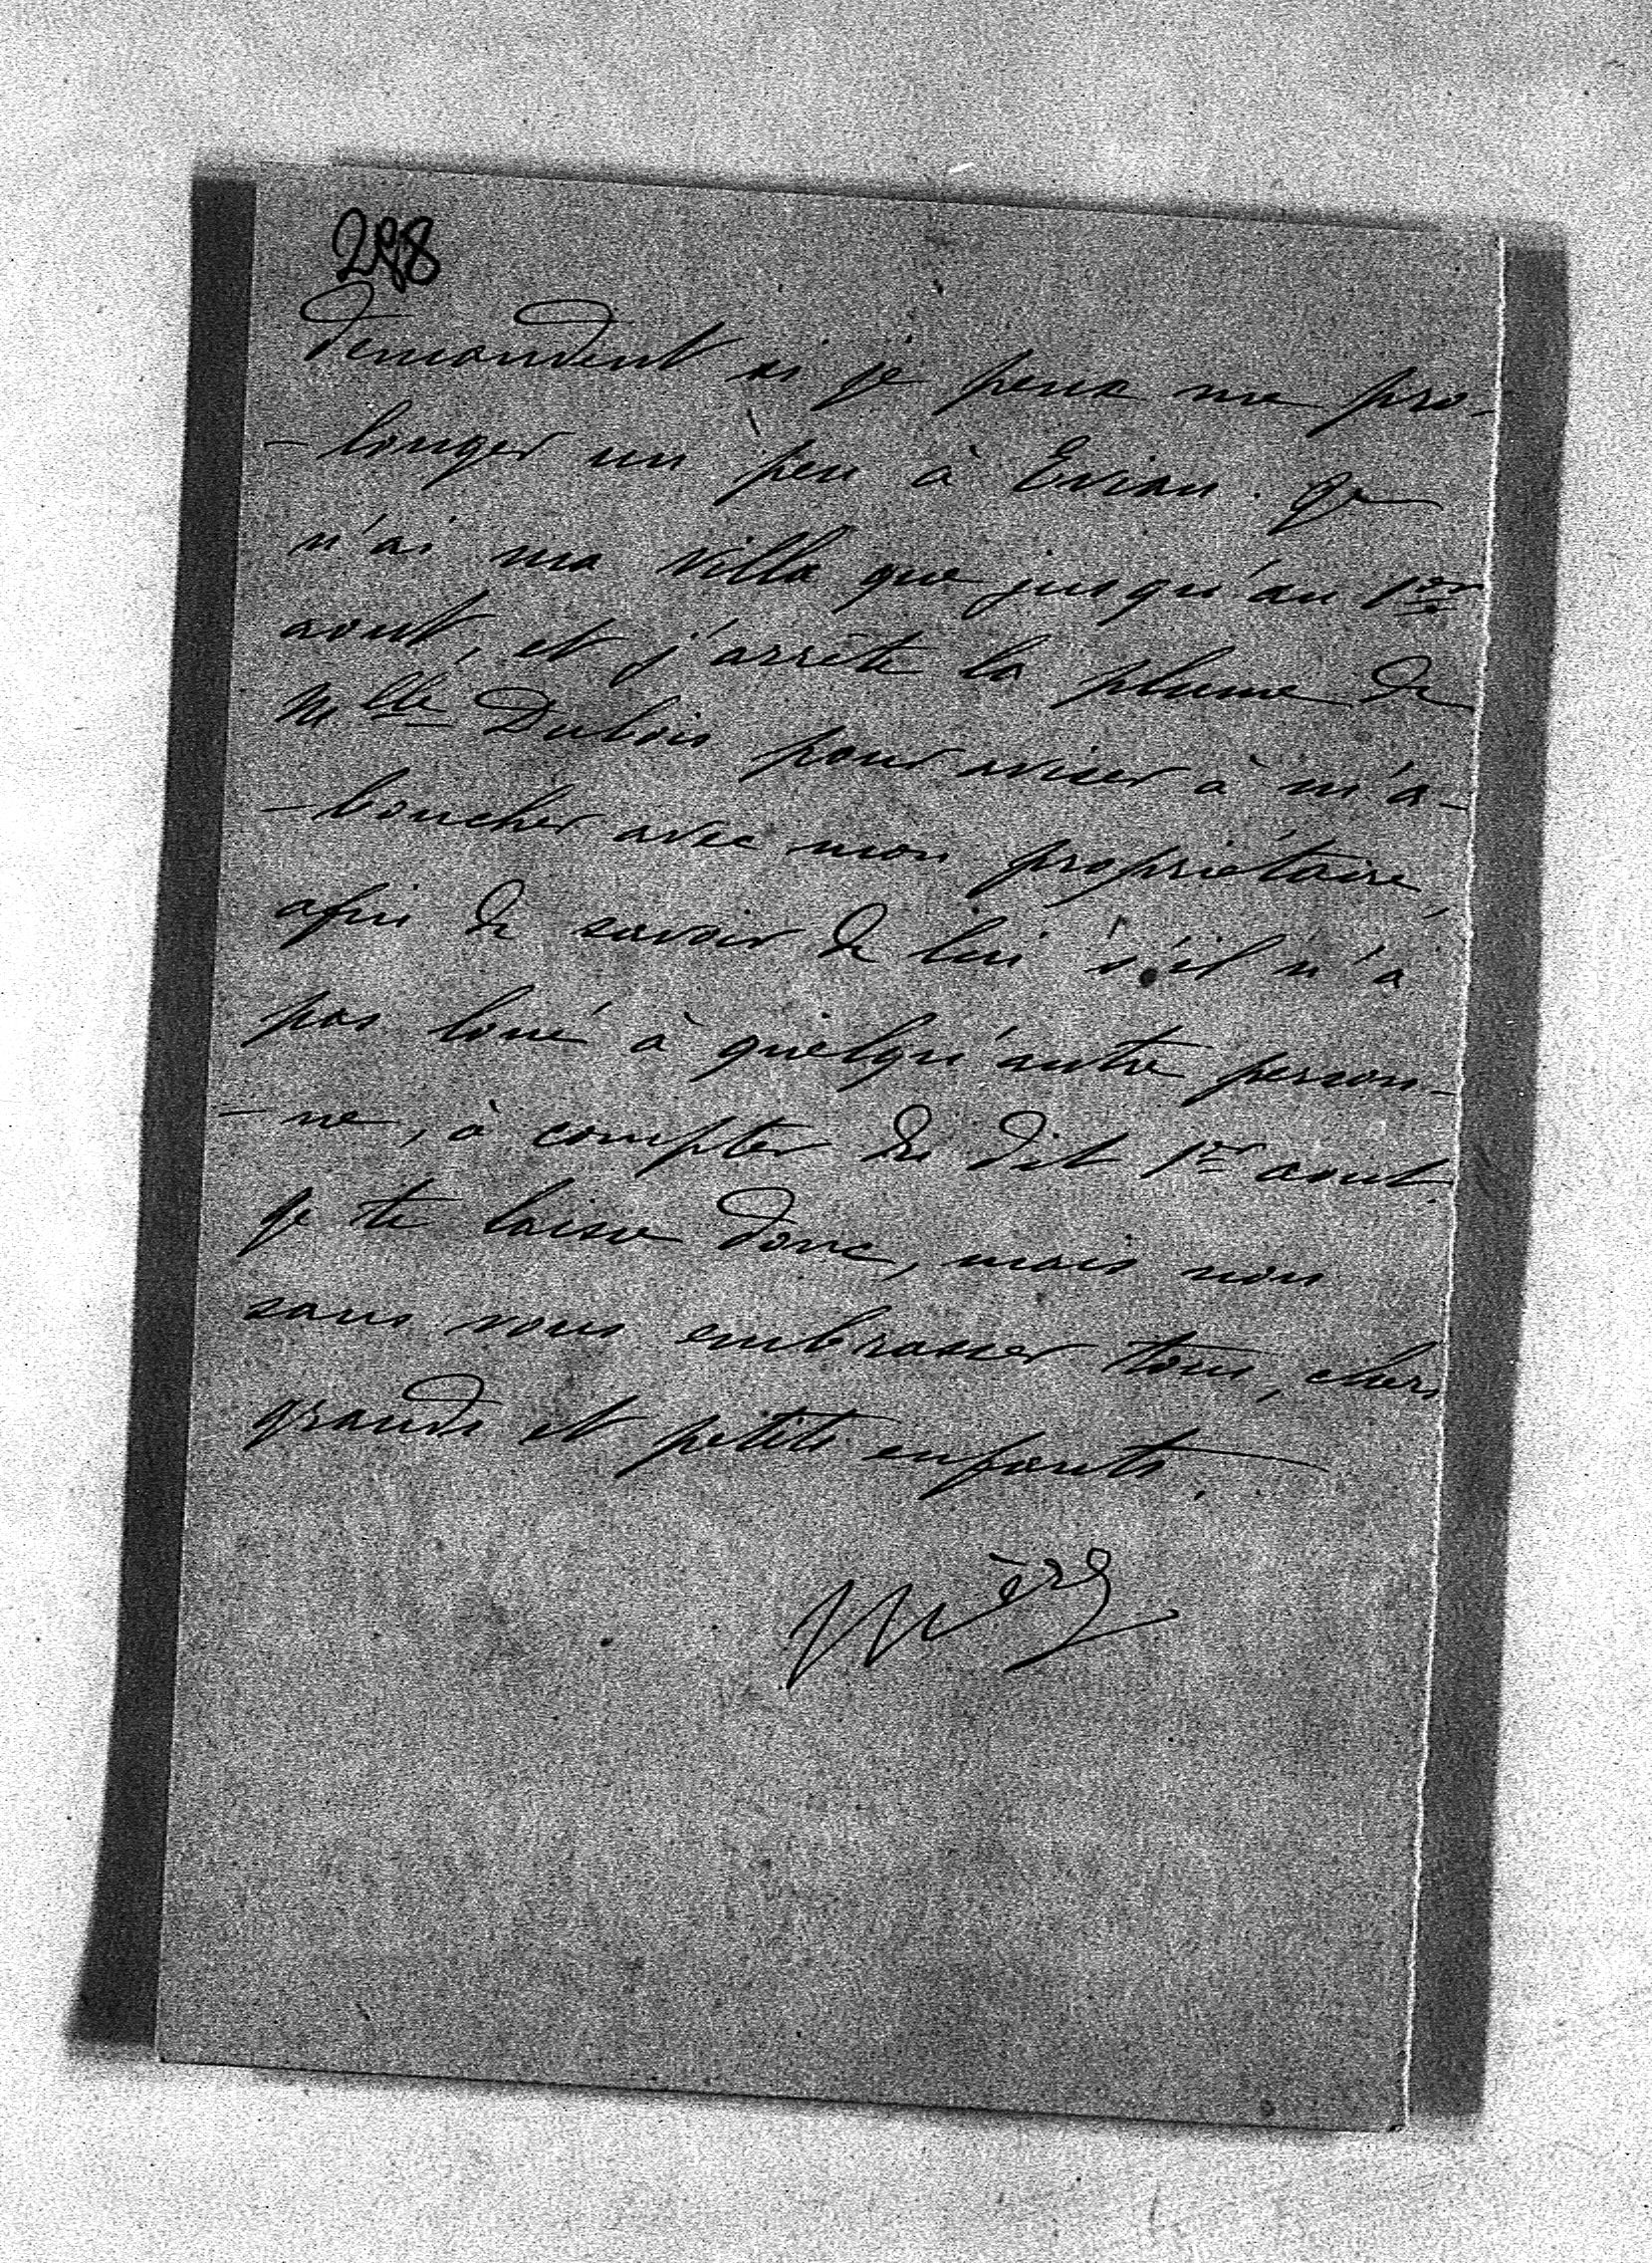 demandent si je peux me pro-
-longer un peu à Evian. Je
n'ai ma villa que jusqu'au 1er
aout, et j'arrête la plume de
Mlle Dubois pour aviser à m'a-
-boucher avec mon propriétaire,
afin de savoir de lui s'il n'a
pas loué à quelqu'autre person-
-ne, à compter du dit 1er aout.
Je te laisse donc, mais non
sans vous embrasser tous, chers
grands et petits enfants.
Mère